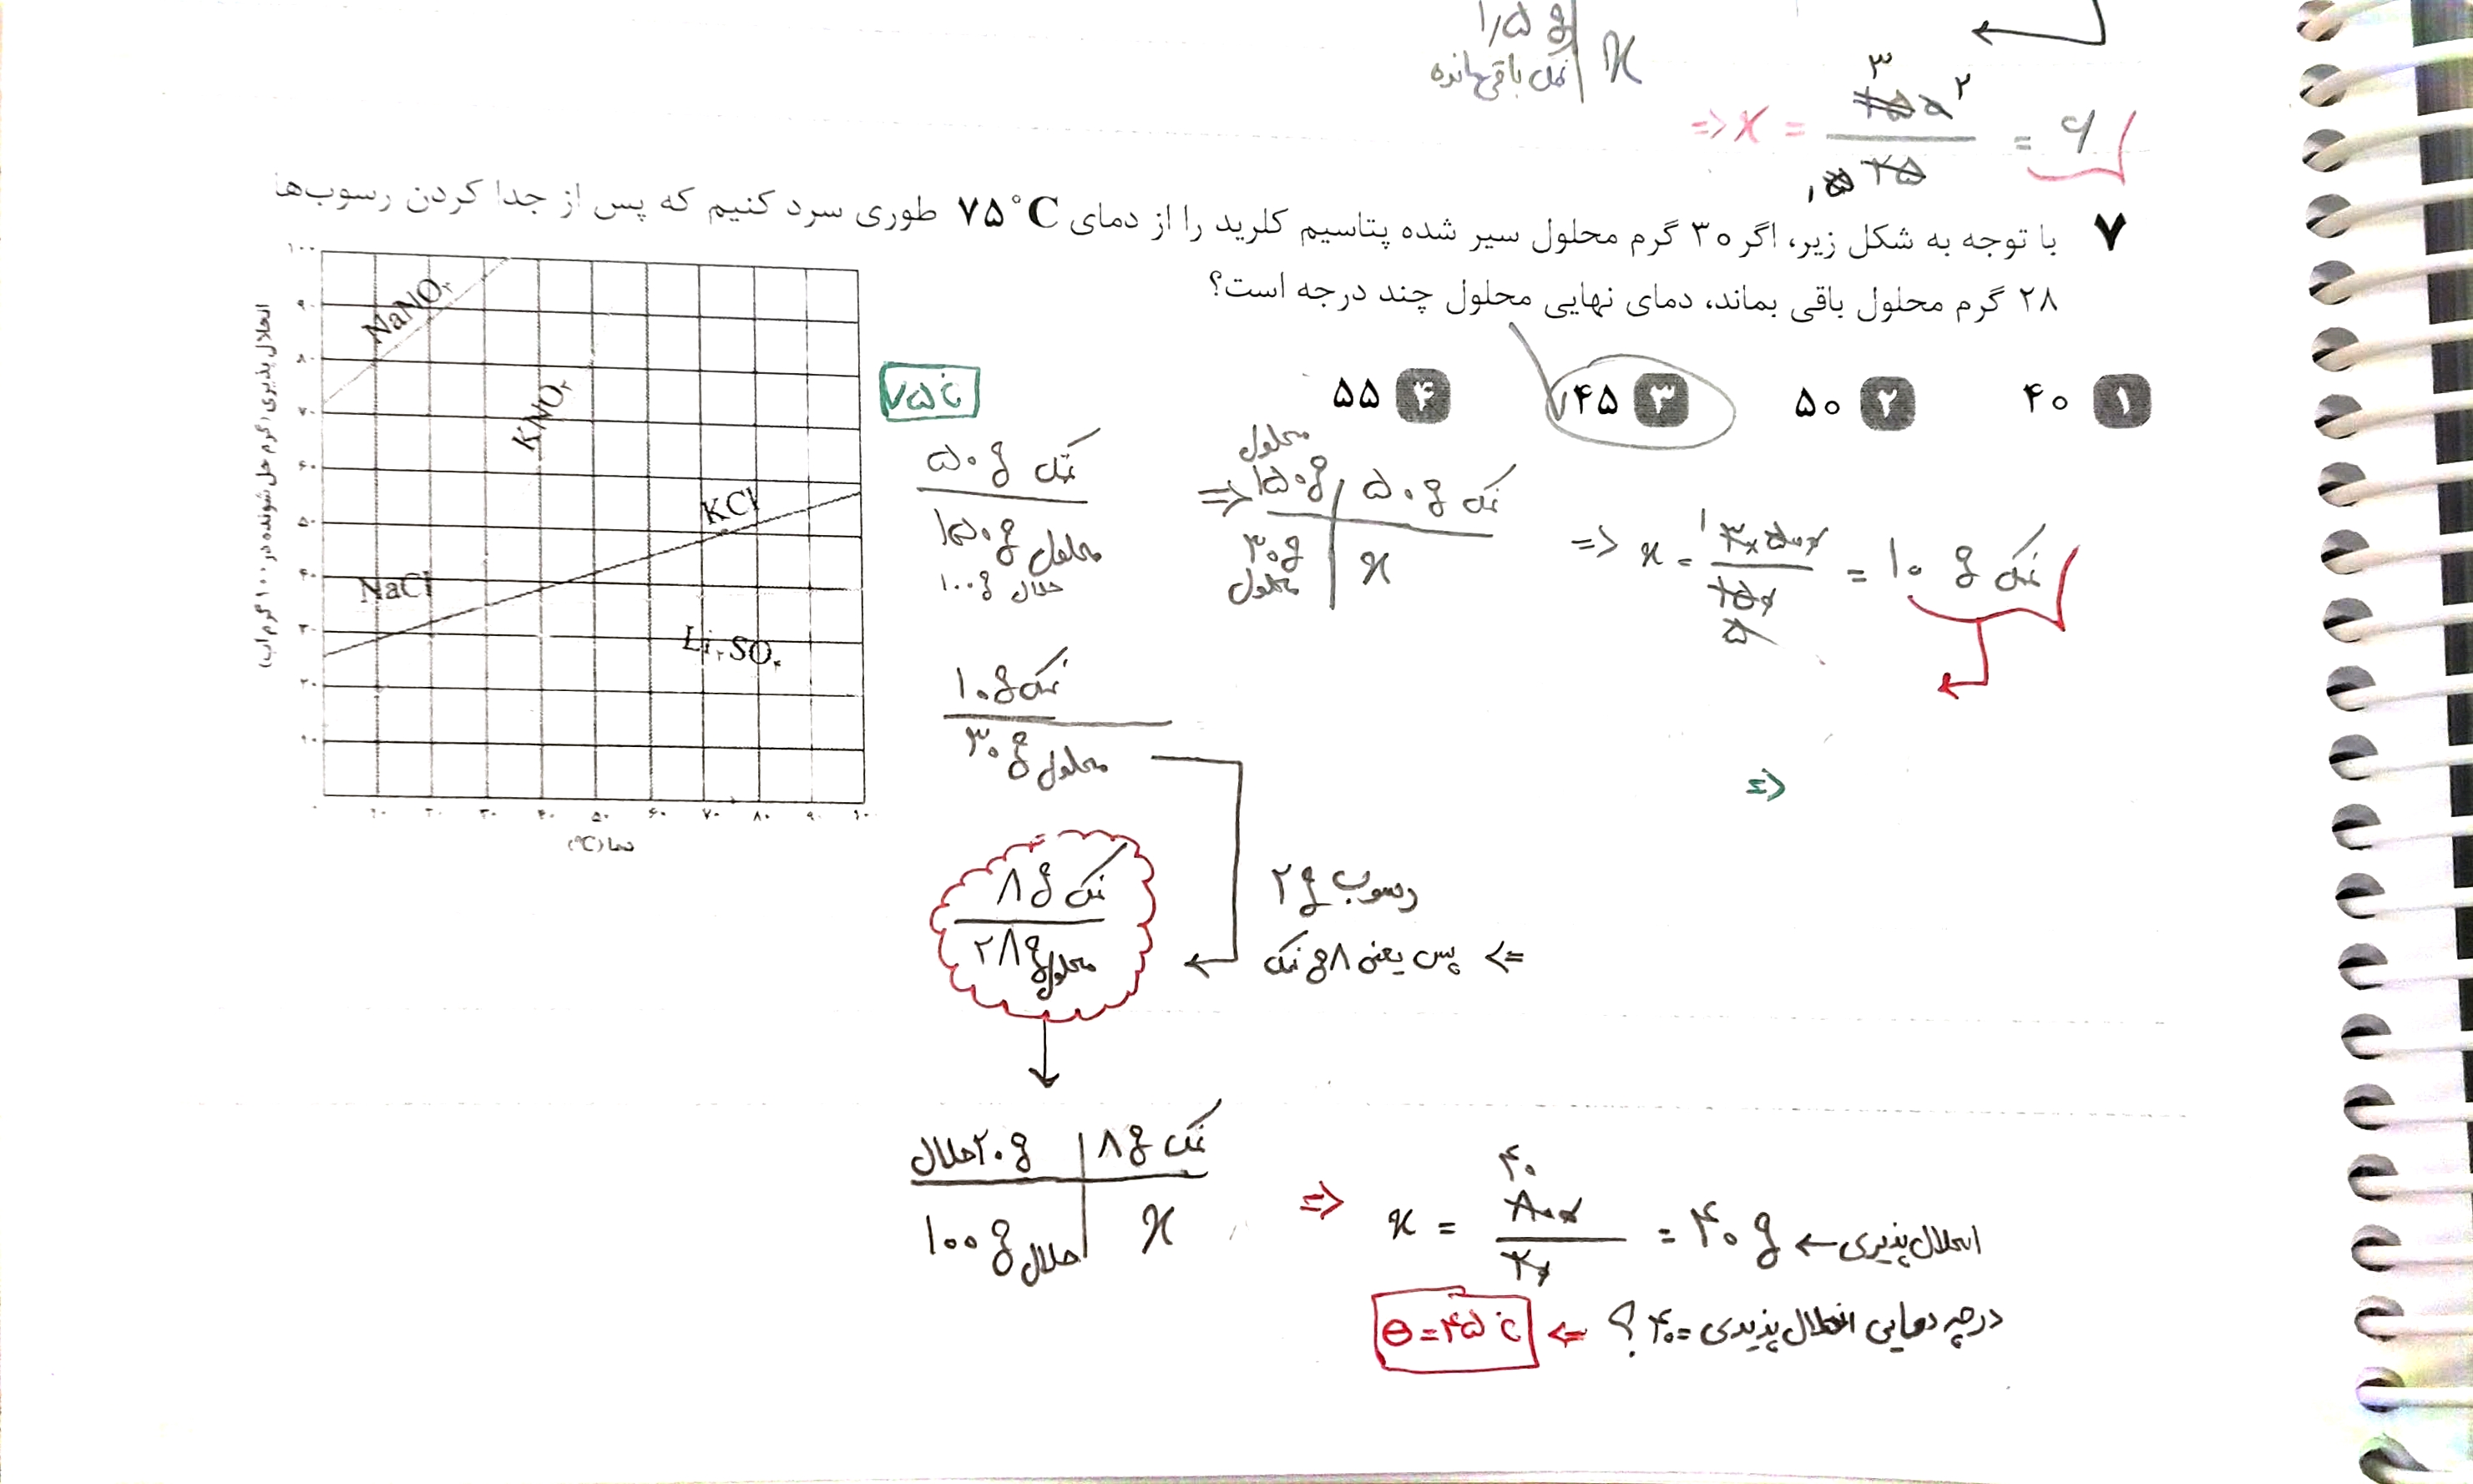 ۱٫۵ g | x
نمک باقی‌مانده
⇒ x = = ۶
۷ با توجه به شکل زیر، اگر ۳۰ گرم محلول سیر شده پتاسیم کلرید را از دمای ۷۵°C طوری سرد کنیم که پس از جدا کردن رسوب‌ها
۲۸ گرم محلول باقی بماند، دمای نهایی محلول چند درجه است؟
۱ ۴۰ ۲ ۵۰ ۳ ۴۵ ۴ ۵۵
انحلال پذیری (گرم حل شونده در ۱۰۰ گرم آب)
۱۰۰
۹۰
۸۰
۷۰
۶۰
۵۰
۴۰
۳۰
۲۰
۱۰
۰ ۱۰ ۲۰ ۳۰ ۴۰ ۵۰ ۶۰ ۷۰ ۸۰ ۹۰ ۱۰۰
دما (°C)
NaNO₃
KNO₃
KCl
NaCl
Li₂SO₄
۷۵°C
۵۰ g نمک
۱۵۰ g محلول
۱۰۰ g حلال
⇒ محلول ۱۵۰ g | ۵۰ g نمک
۳۰ g محلول | x
⇒ x = ۳×۵۰۰ / ۱۵۰ = ۱۰ g نمک
۱۰ g نمک
۳۰ g محلول
⇒
رسوب ۲ g
⇒ پس یعنی ۸ g نمک
۸ g نمک
۲۸ g محلول
۲۰ g حلال | ۸ g نمک
۱۰۰ g حلال | x
⇒ x = ۸۰۰ / ۲۰ = ۴۰ g ← انحلال پذیری
۴۰
درجه دمایی انحلال پذیری = ۴۰ ؟ ⇐ θ = ۴۵°C